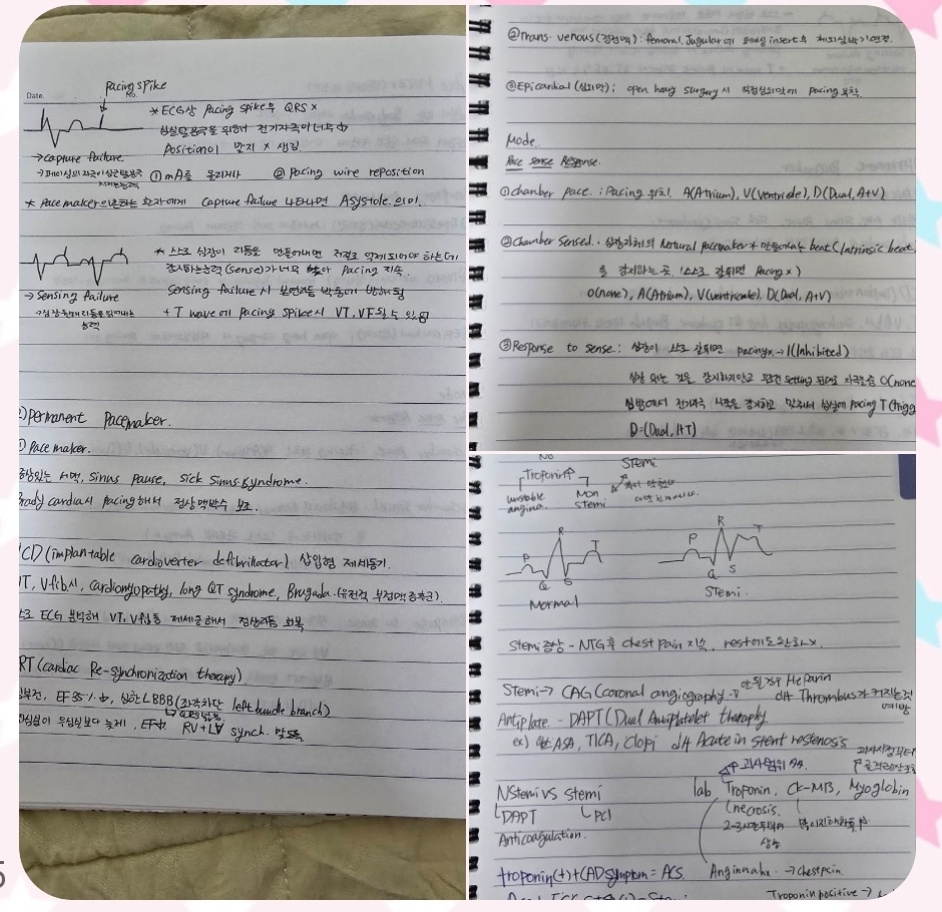 Date. No.
pacing spike
* ECG상 pacing spike후 QRS x
심실탈분극을 위해 전기자극이 너무 ↓
position이 맞지 x 생김
→ capture failure
① mA를 올리거나 ② pacing wire reposition
* Pacemaker으존하는 환자에게 capture failure 나타나면 Asystole 의미.
* 스스로 심장이 리듬을 만들어내면 저절로 억제되어야 하는데
감지하는능력(sense)가 너무 낮아 pacing 지속.
→ Sensing failure
Sensing failure 시 본연리듬 박동에 방해됨
+ T wave에 pacing spike시 VT, VF될 수 있음
permanent pacemaker.
pace maker.
증상있는 서맥, sinus pause, sick sinus syndrome.
Brady cardia시 pacing해서 정상맥박수 보조.
CD (implantable cardioverter defibrillator) 삽입형 제세동기.
VT, V.fib시, cardiomyopathy, long QT syndrome, Brugada.
ECG 분석해 VT, V.fib를 제세동해서 정상리듬 회복
RT (cardiac Re-synchronization therapy)
EF 35%↓, 심한 LBBB (좌각차단 left bundle branch)
좌심실이 우심실보다 늦게, EF↓ RV+LV synch. 맞도록
②Trans-venous(경정맥): femoral, Jugular에 insert후 체외심박기 연결.
③Epicardial (심외막): open heart surgery시 직접심외막에 pacing 부착.
Mode.
Pace sense Response.
①chamber pace : pacing 위치. A(Atrium), V(ventricle), D(Dual, A+V)
②chamber sensed. 심장자체의 Natural pacemaker가 만들어내는 beat (intrinsic beat)
를 감지하는 곳. (스스로 잘뛰면 pacing x)
O(none), A(Atrium), V(ventricle), D(Dual, A+V)
③Response to sense: 심장이 스스로 잘뛰면 pacing x → I(Inhibited)
심장 뛰는 것을 감지하지않고 setting 된대로 자극줌 O(none
심방에서 전기자극 시작을 감지하고 맞춰서 심실에 pacing T(trigg
D=(Dual, I+T)
No Stemi
Troponin↑
unstable angina. Non stemi
P R T Q S
Normal
P R T Q S
Stemi.
Stemi 증상 - NTG 후 chest pain 지속, rest에도 완화 x
안될경우 Heparin
Stemi → CAG (coronal angiography
d/t Thrombus가 커지는것 예방
Antiplate - DAPT (Dual Antiplatelet theraphy
ex) ASA, TICA, Clopi d/t Acute in stent restenosis
NStemi vs Stemi
DAPT PCI
Anticoagulation.
lab Troponin, CK-MB, Myoglobin
(necrosis.
2-3시간뒤부터
상승
troponin(+) + CAD symptom = ACS.
Angina → chest pain
Troponin positive →